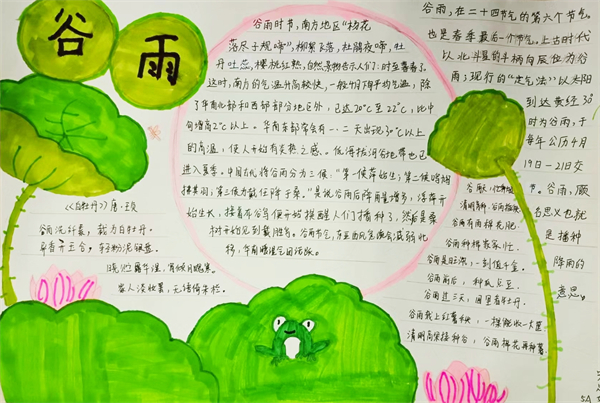 谷雨
谷雨时节,南方地区“杨花
落尽子规啼”,柳絮飞落,杜鹃夜啼,牡
丹吐蕊,樱桃红熟,自然景物告示人们:时至暮春了。
这时,南方的气温升高较快,一般4月下旬平均气温,除
了华南北部和西部部分地区外,已达20℃至22℃,比中
旬增高2℃以上。华南东部常会有一、二天出现30℃以上
的高温,使人开始有炎热之感。低海拔河谷地带也已
进入夏季。中国古代将谷雨分为三候:“第一候萍始生;第二候鸣鸠
拂其羽;第三候为戴任降于桑。”是说谷雨后降雨量增多,浮萍开
始生长,接着布谷鸟便开始提醒人们播种了,然后是桑
树上开始见到戴胜鸟。谷雨节气,东亚高空
谷雨,在二十四节气的第六个节气,
也是春季最后一个节气。上古时代
以北斗星的斗柄向辰位为谷
雨;现行的“定气法”以太阳
到达黄经30°
时为谷雨,于
每年公历4月
19日-21日交
节。谷雨,顾
名思义也就
是播种
降雨的
意思。
《白牡丹》唐·王贞
谷雨洗纤素,裁为白牡丹。
异香开玉合,轻粉泥银盘。
晓贮露华湿,宵倾月魄寒。
家人淡妆罢,无语倚朱栏。
谷雨有雨棉花肥。
谷雨种棉家家忙。
谷雨是旺汛,一刻值千金。
谷雨前后,种瓜点豆。
谷雨过三天,园里看牡丹。
谷雨栽上红薯秧,一棵能收一大筐
清明高粱接种谷,谷雨棉花再种薯